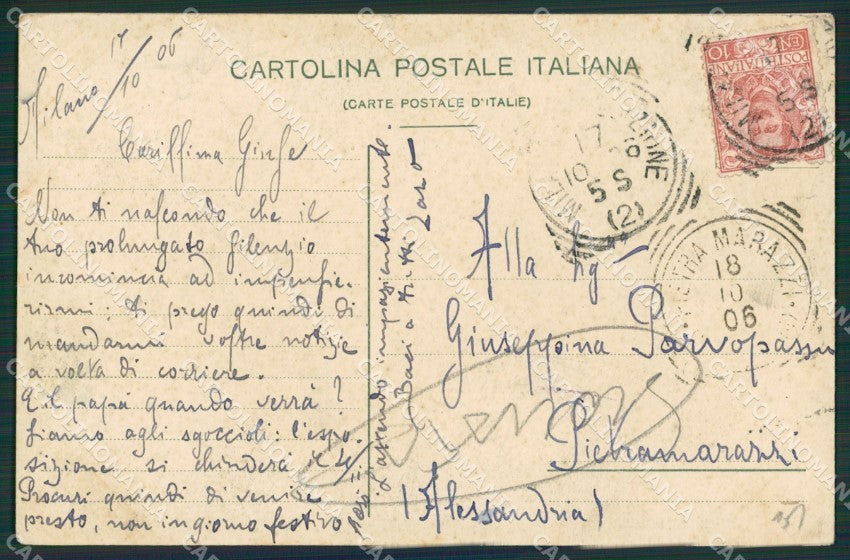 CARTOLINA POSTALE ITALIANA
(CARTE POSTALE D'ITALIE)
Milano 17/10 06
Carissima Giuse
Non ti nascondo che il
tuo prolungato silenzio
incomincia ad impensie-
rirmi; ti prego quindi di
mandarmi vostre notizie
a volta di corriere.
E il papà quando verrà?
Siamo agli sgoccioli: l'espo-
sizione si chiuderà il 4/
Procuri quindi di venire
presto, non in giorno festivo
L'attendo impazientemente.
Baci a tutti
Alla Sig.na
Giuseppina Parvopassu
Pietramarazzi
(Alessandria)
POSTE ITALIANE
CENT. 10
17
10 06
5 S
(2)
5 S
(2)
PIETRA MARAZZI
18
10
06
CARTOLINOMANIA